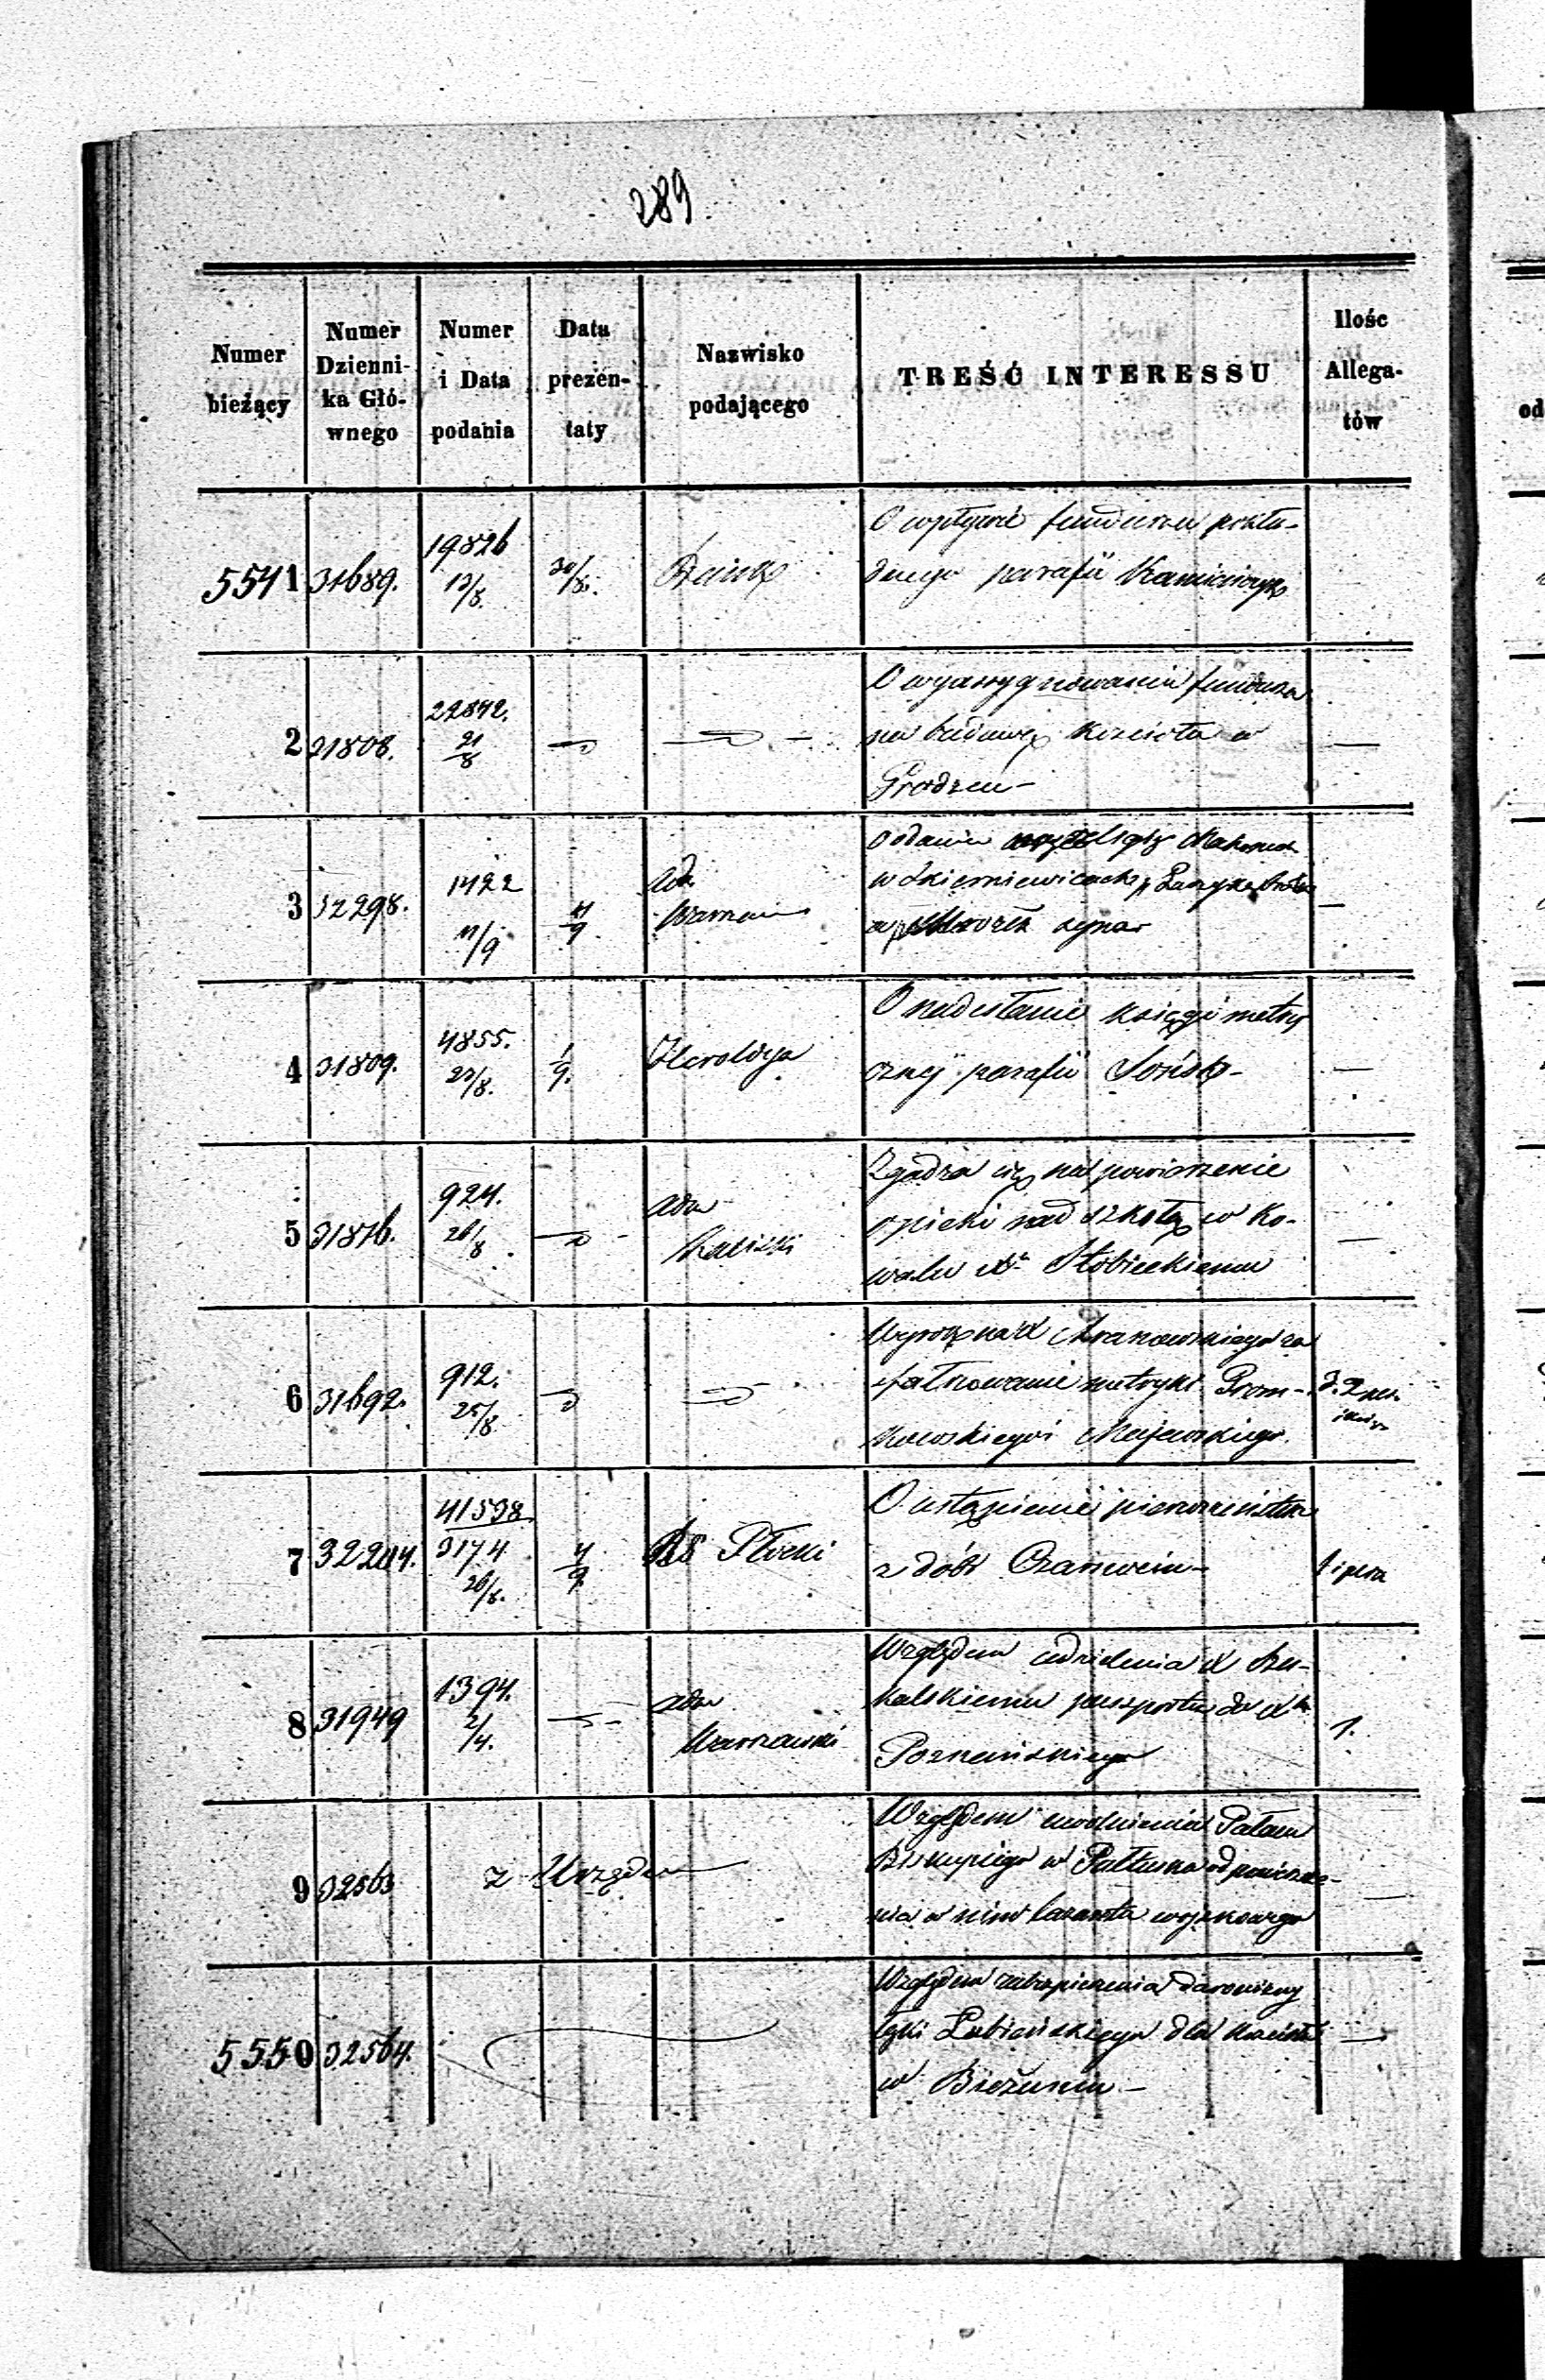 289
Numer bieżący
Numer Dzienni-ka Głó-wnego
Numer i Data podania
Data prezen-taty
Nazwisko podającego
TREŚĆ INTERESSU
Ilość Allega-tów
od
5541 31689. 19826 13/8. 30/8. Bank
O wpływie funduszu pokła-
dnego parafii Kamieńczyk
2 31808. 22842. 21/8
O wyassygnowanie funduszu
na budowę kościoła w
Grodzcu —
3 32298. 1422 11/9 11/9
O danie
w Skierniewicach
4 31809. 4855. 23/8. 1/9. Heroldya
O nadesłanie księgi metry
cznej parafii Sońsk —
5 31876. 924. 26/8 Adm Kaliski
Zgadza się na powierzenie
opieki nad szkołą w Ko-
walu Xu Słobieckiemu
6 31692. 912. 25/8
Wyrok na X
sfałszowanie metryki Prom-
kowskiego i Majewskiego.
7 32204. 41538 3174 26/8. 4/9 RG Płocki
O ustąpienie pierwszeństwa
z dóbr —
1 i plan
8 31949 1394. 2/4. Adm Warszawski
Względem udzielenia X
kalskiemu paszportu do Xa
Poznańskiego
1.
9 32563 z Urzędu
Względem uwolnienia Pałacu
Biskupiego w Pułtusku od pomieszcze-
nia w nim lazaretu wojskowego
5550 32564.
Względem zabezpieczenia darowizny
Łubieńskiego dla kościoła
w Bieżuniu —